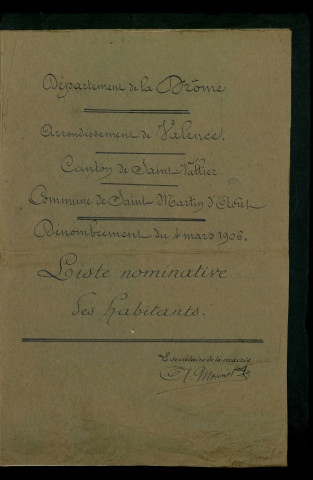 Département de la Drôme
Arrondissement de Valence.
Canton de Saint-Vallier
Commune de Saint Martin d'Août
Dénombrement du 4 mars 1906.
Liste nominative
des habitants.
Le secrétaire de la mairie